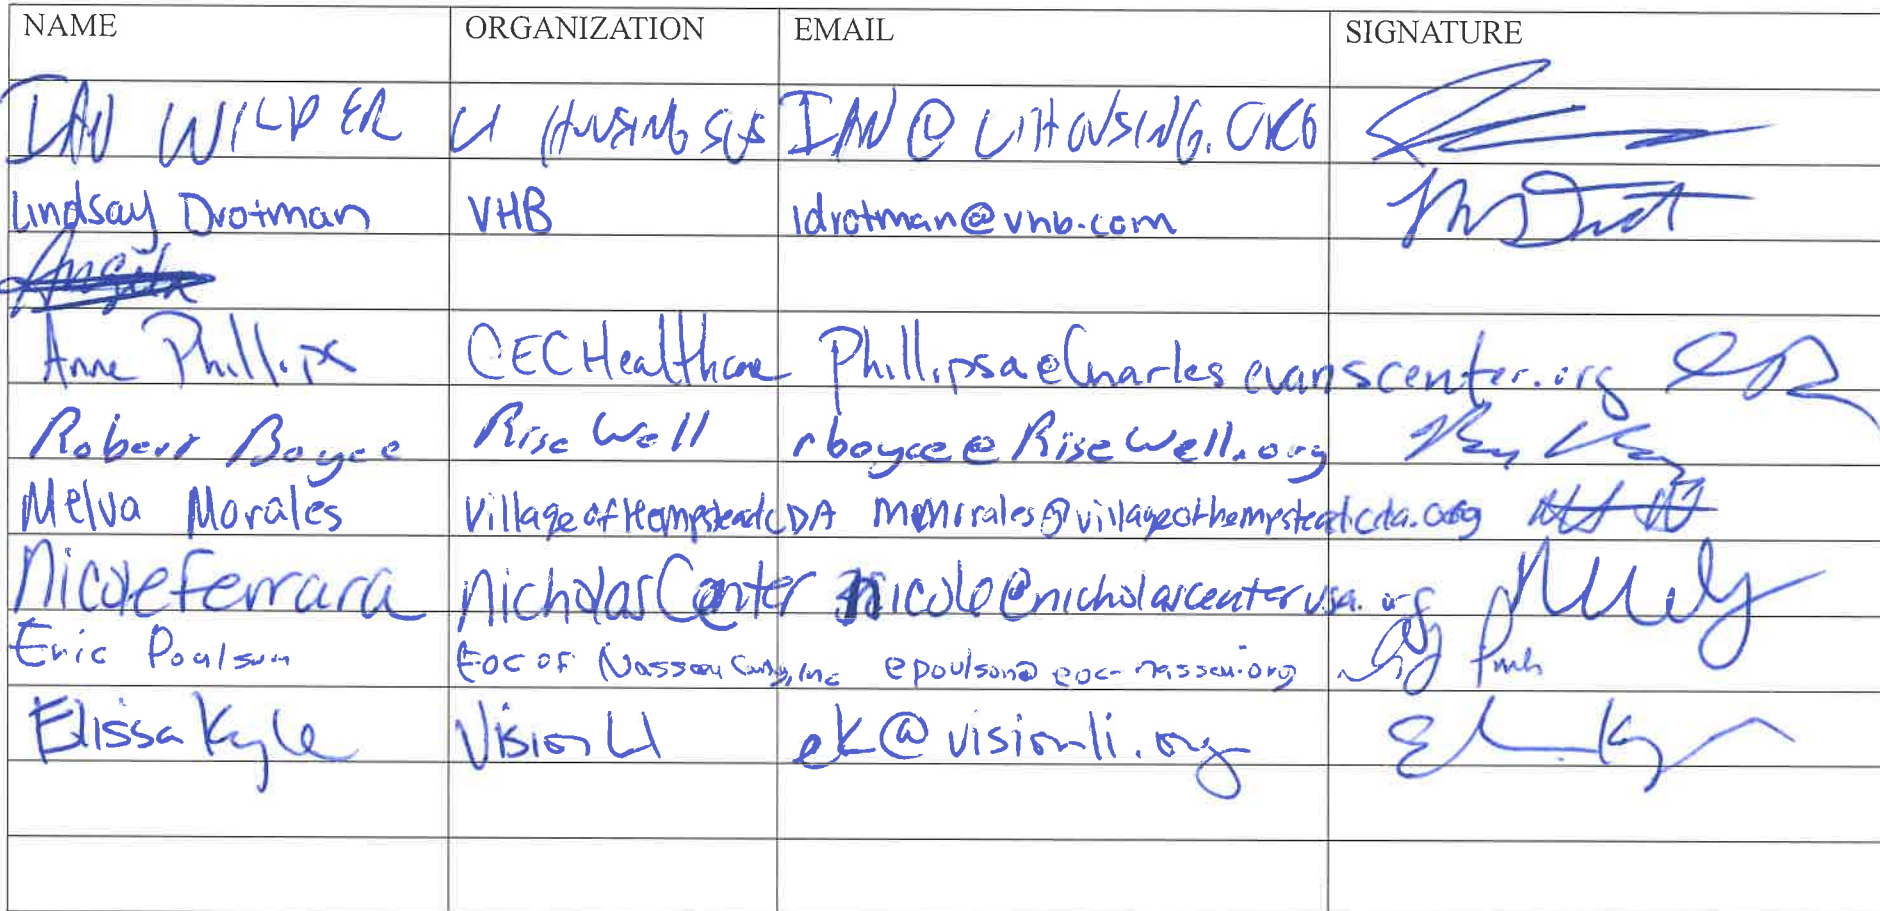 NAME ORGANIZATION EMAIL SIGNATURE
IAN WILDER LI HOUSING SVS IAN@LIHOUSING.ORG
Lindsay Drotman VHB ldrotman@vhb.com
Angela
Anne Phillips CEC Healthcare Phillipsa@Charlesevanscenter.org
Robert Boyce Rise Well rboyce@RiseWell.org
Melva Morales Village of Hempstead CDA mmorales@villageofhempsteadcda.org
Nicole Ferrara Nicholas Center nicole@nicholascenterusa.org
Eric Poulson EOC of Nassau County, Inc epoulson@eoc-nassau.org
Elissa Kyle Vision LI ek@visionli.org